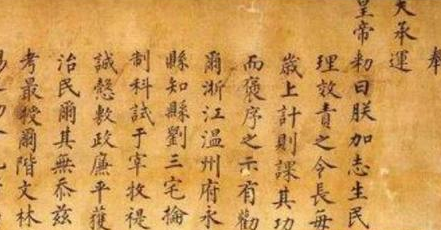 奉
天承運
皇帝勅曰朕加志生民
理效責之令長毎
歲上計則課其功
而褒序之示有勸
爾浙江温州府永
縣知縣劉三宅掄
制科試于宰牧禔
誠慤敷政廉平獲
治民爾其無忝茲
考最授爾階文林